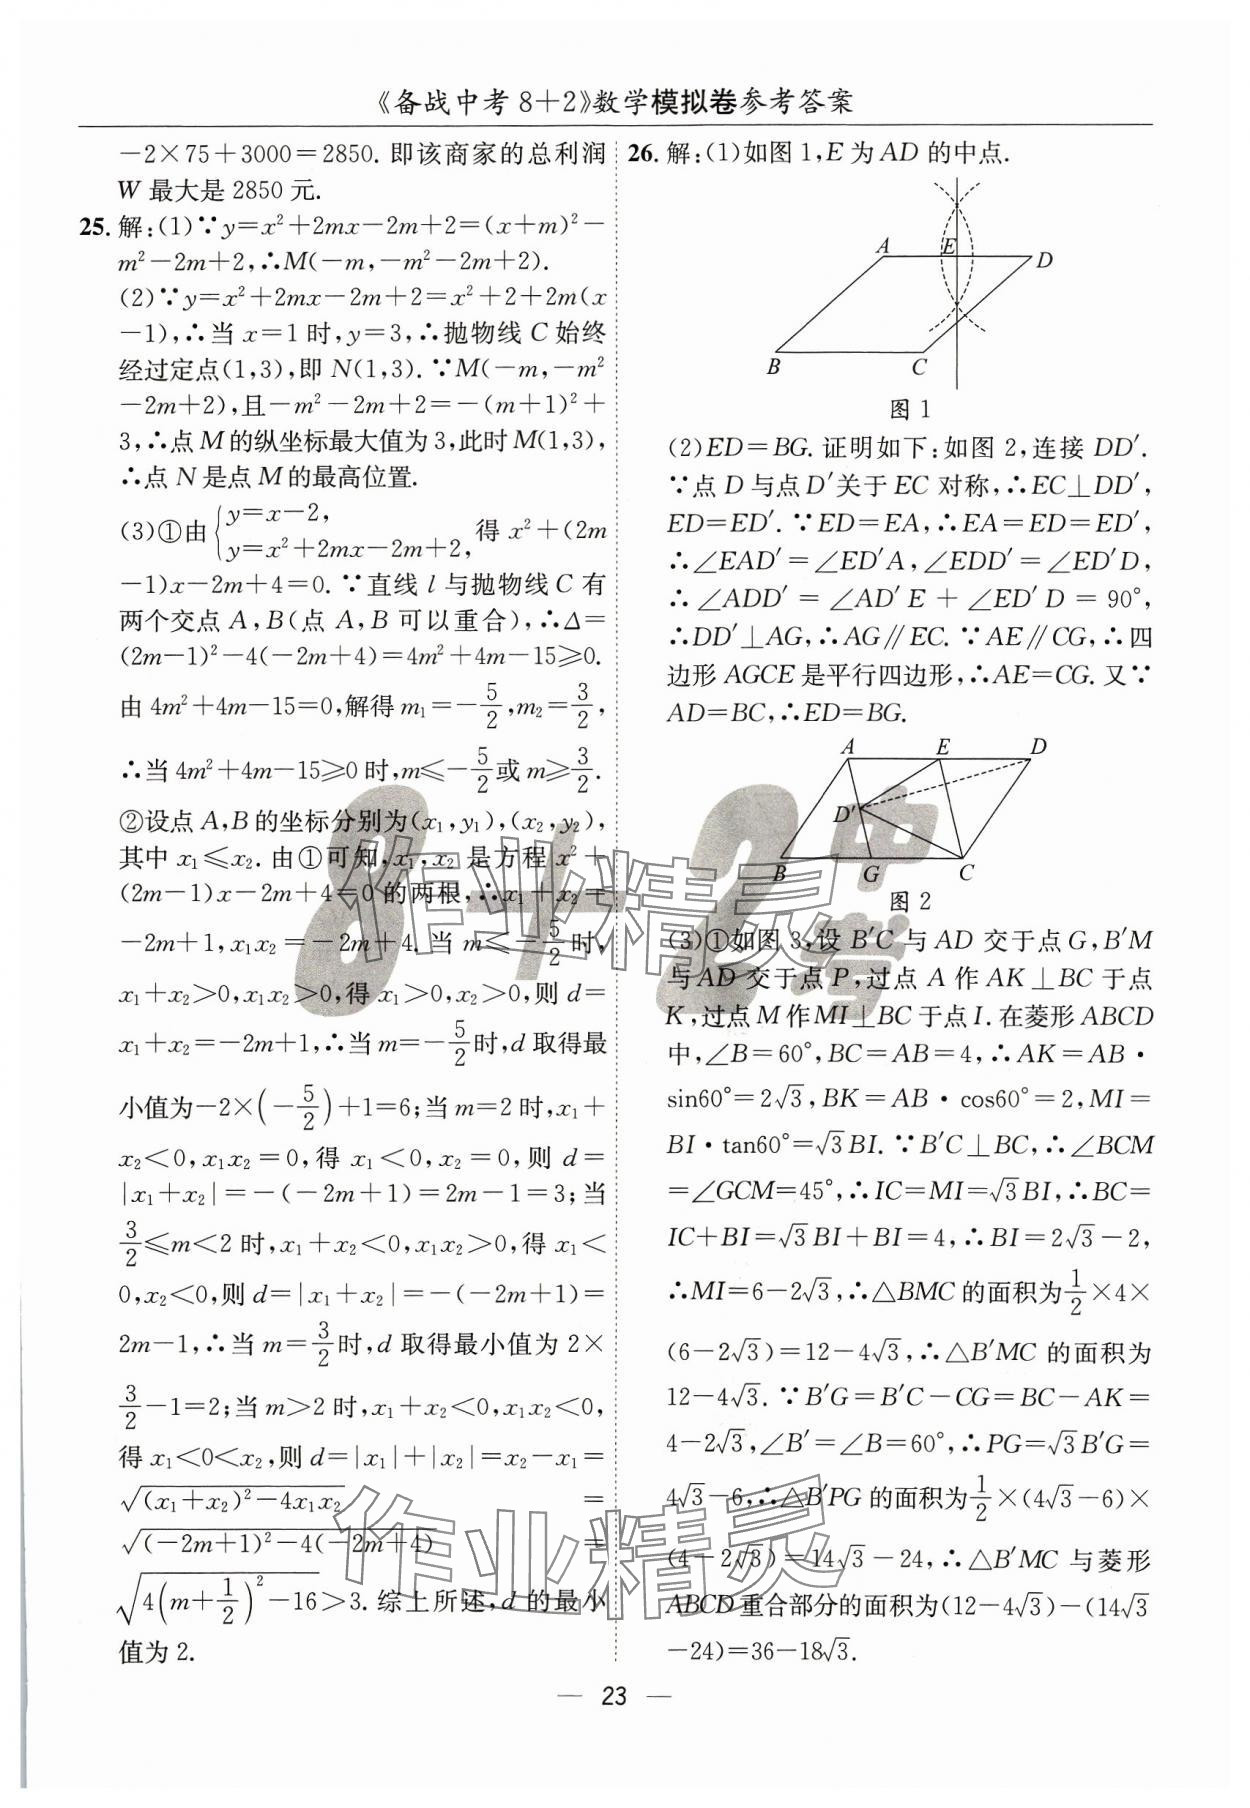 《备战中考8+2》数学模拟卷参考答案
-2×75+3000=2850. 即该商家的总利润
W 最大是 2850 元.
25. 解:(1)∵y=x²+2mx-2m+2=(x+m)²-
m²-2m+2,∴M(-m,-m²-2m+2).
(2)∵y=x²+2mx-2m+2=x²+2+2m(x
-1),∴当 x=1 时,y=3,∴抛物线 C 始终
经过定点(1,3),即 N(1,3). ∵M(-m,-m²
-2m+2),且-m²-2m+2=-(m+1)²+
3,∴点 M 的纵坐标最大值为 3,此时 M(1,3),
∴点 N 是点 M 的最高位置.
(3)①由{y=x-2, y=x²+2mx-2m+2, 得 x²+(2m
-1)x-2m+4=0. ∵直线 l 与抛物线 C 有
两个交点 A,B(点 A,B 可以重合),∴Δ=
(2m-1)²-4(-2m+4)=4m²+4m-15≥0.
由 4m²+4m-15=0,解得 m₁=-5/2,m₂=3/2,
∴当 4m²+4m-15≥0 时,m≤-5/2或 m≥3/2.
②设点 A,B 的坐标分别为(x₁,y₁),(x₂,y₂),
其中 x₁≤x₂. 由①可知,x₁,x₂ 是方程 x²+
(2m-1)x-2m+4=0 的两根,∴x₁+x₂=
-2m+1,x₁x₂=-2m+4. 当 m≤-5/2时,
x₁+x₂>0,x₁x₂>0,得 x₁>0,x₂>0,则 d=
x₁+x₂=-2m+1,∴当 m=-5/2时,d 取得最
小值为-2×(-5/2)+1=6;当 m=2 时,x₁+
x₂<0,x₁x₂=0,得 x₁<0,x₂=0,则 d=
|x₁+x₂|=-(-2m+1)=2m-1=3;当
3/2≤m<2 时,x₁+x₂<0,x₁x₂>0,得 x₁<
0,x₂<0,则 d=|x₁+x₂|=-(-2m+1)=
2m-1,∴当 m=3/2时,d 取得最小值为 2×
3/2-1=2;当 m>2 时,x₁+x₂<0,x₁x₂<0,
得 x₁<0<x₂,则 d=|x₁|+|x₂|=x₂-x₁=
√((x₁+x₂)²-4x₁x₂) =
√((-2m+1)²-4(-2m+4)) =
√(4(m+1/2)²-16)>3. 综上所述,d 的最小
值为 2.
26. 解:(1)如图 1,E 为 AD 的中点.
A E D
B C
图 1
(2)ED=BG. 证明如下:如图 2,连接 DD′.
∵点 D 与点 D′关于 EC 对称,∴EC⊥DD′,
ED=ED′. ∵ED=EA,∴EA=ED=ED′,
∴∠EAD′=∠ED′A,∠EDD′=∠ED′D,
∴∠ADD′=∠AD′E+∠ED′D=90°,
∴DD′⊥AG,∴AG∥EC. ∵AE∥CG,∴四
边形 AGCE 是平行四边形,∴AE=CG. 又∵
AD=BC,∴ED=BG.
A E D
D′
B G C
图 2
(3)①如图 3,设 B′C 与 AD 交于点 G,B′M
与 AD 交于点 P,过点 A 作 AK⊥BC 于点
K,过点 M 作 MI⊥BC 于点 I. 在菱形 ABCD
中,∠B=60°,BC=AB=4,∴AK=AB·
sin60°=2√3,BK=AB·cos60°=2,MI=
BI·tan60°=√3BI. ∵B′C⊥BC,∴∠BCM
=∠GCM=45°,∴IC=MI=√3BI,∴BC=
IC+BI=√3BI+BI=4,∴BI=2√3-2,
∴MI=6-2√3,∴△BMC 的面积为1/2×4×
(6-2√3)=12-4√3,∴△B′MC 的面积为
12-4√3. ∵B′G=B′C-CG=BC-AK=
4-2√3,∠B′=∠B=60°,∴PG=√3B′G=
4√3-6,∴△B′PG 的面积为1/2×(4√3-6)×
(4-2√3)=14√3-24,∴△B′MC 与菱形
ABCD 重合部分的面积为(12-4√3)-(14√3
-24)=36-18√3.
8+2中考
作业精灵
作业精灵
— 23 —